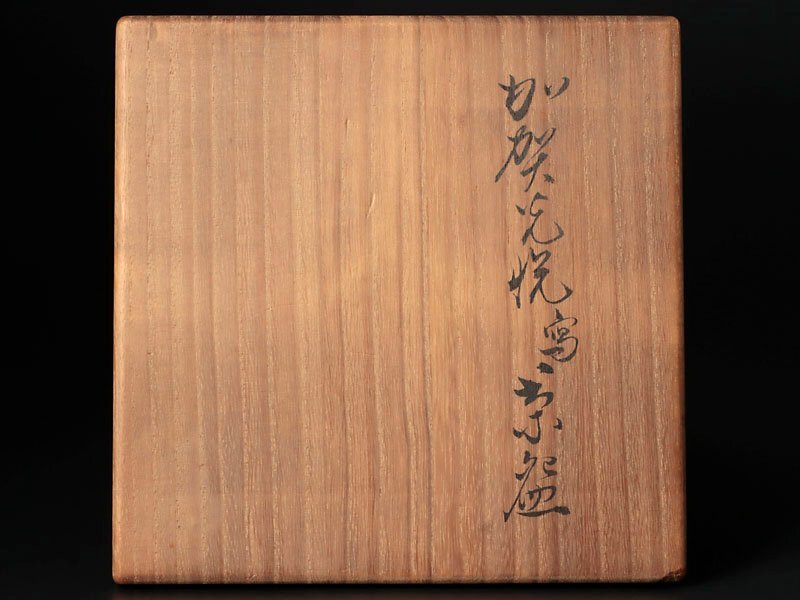 加賀光悦写茶盌